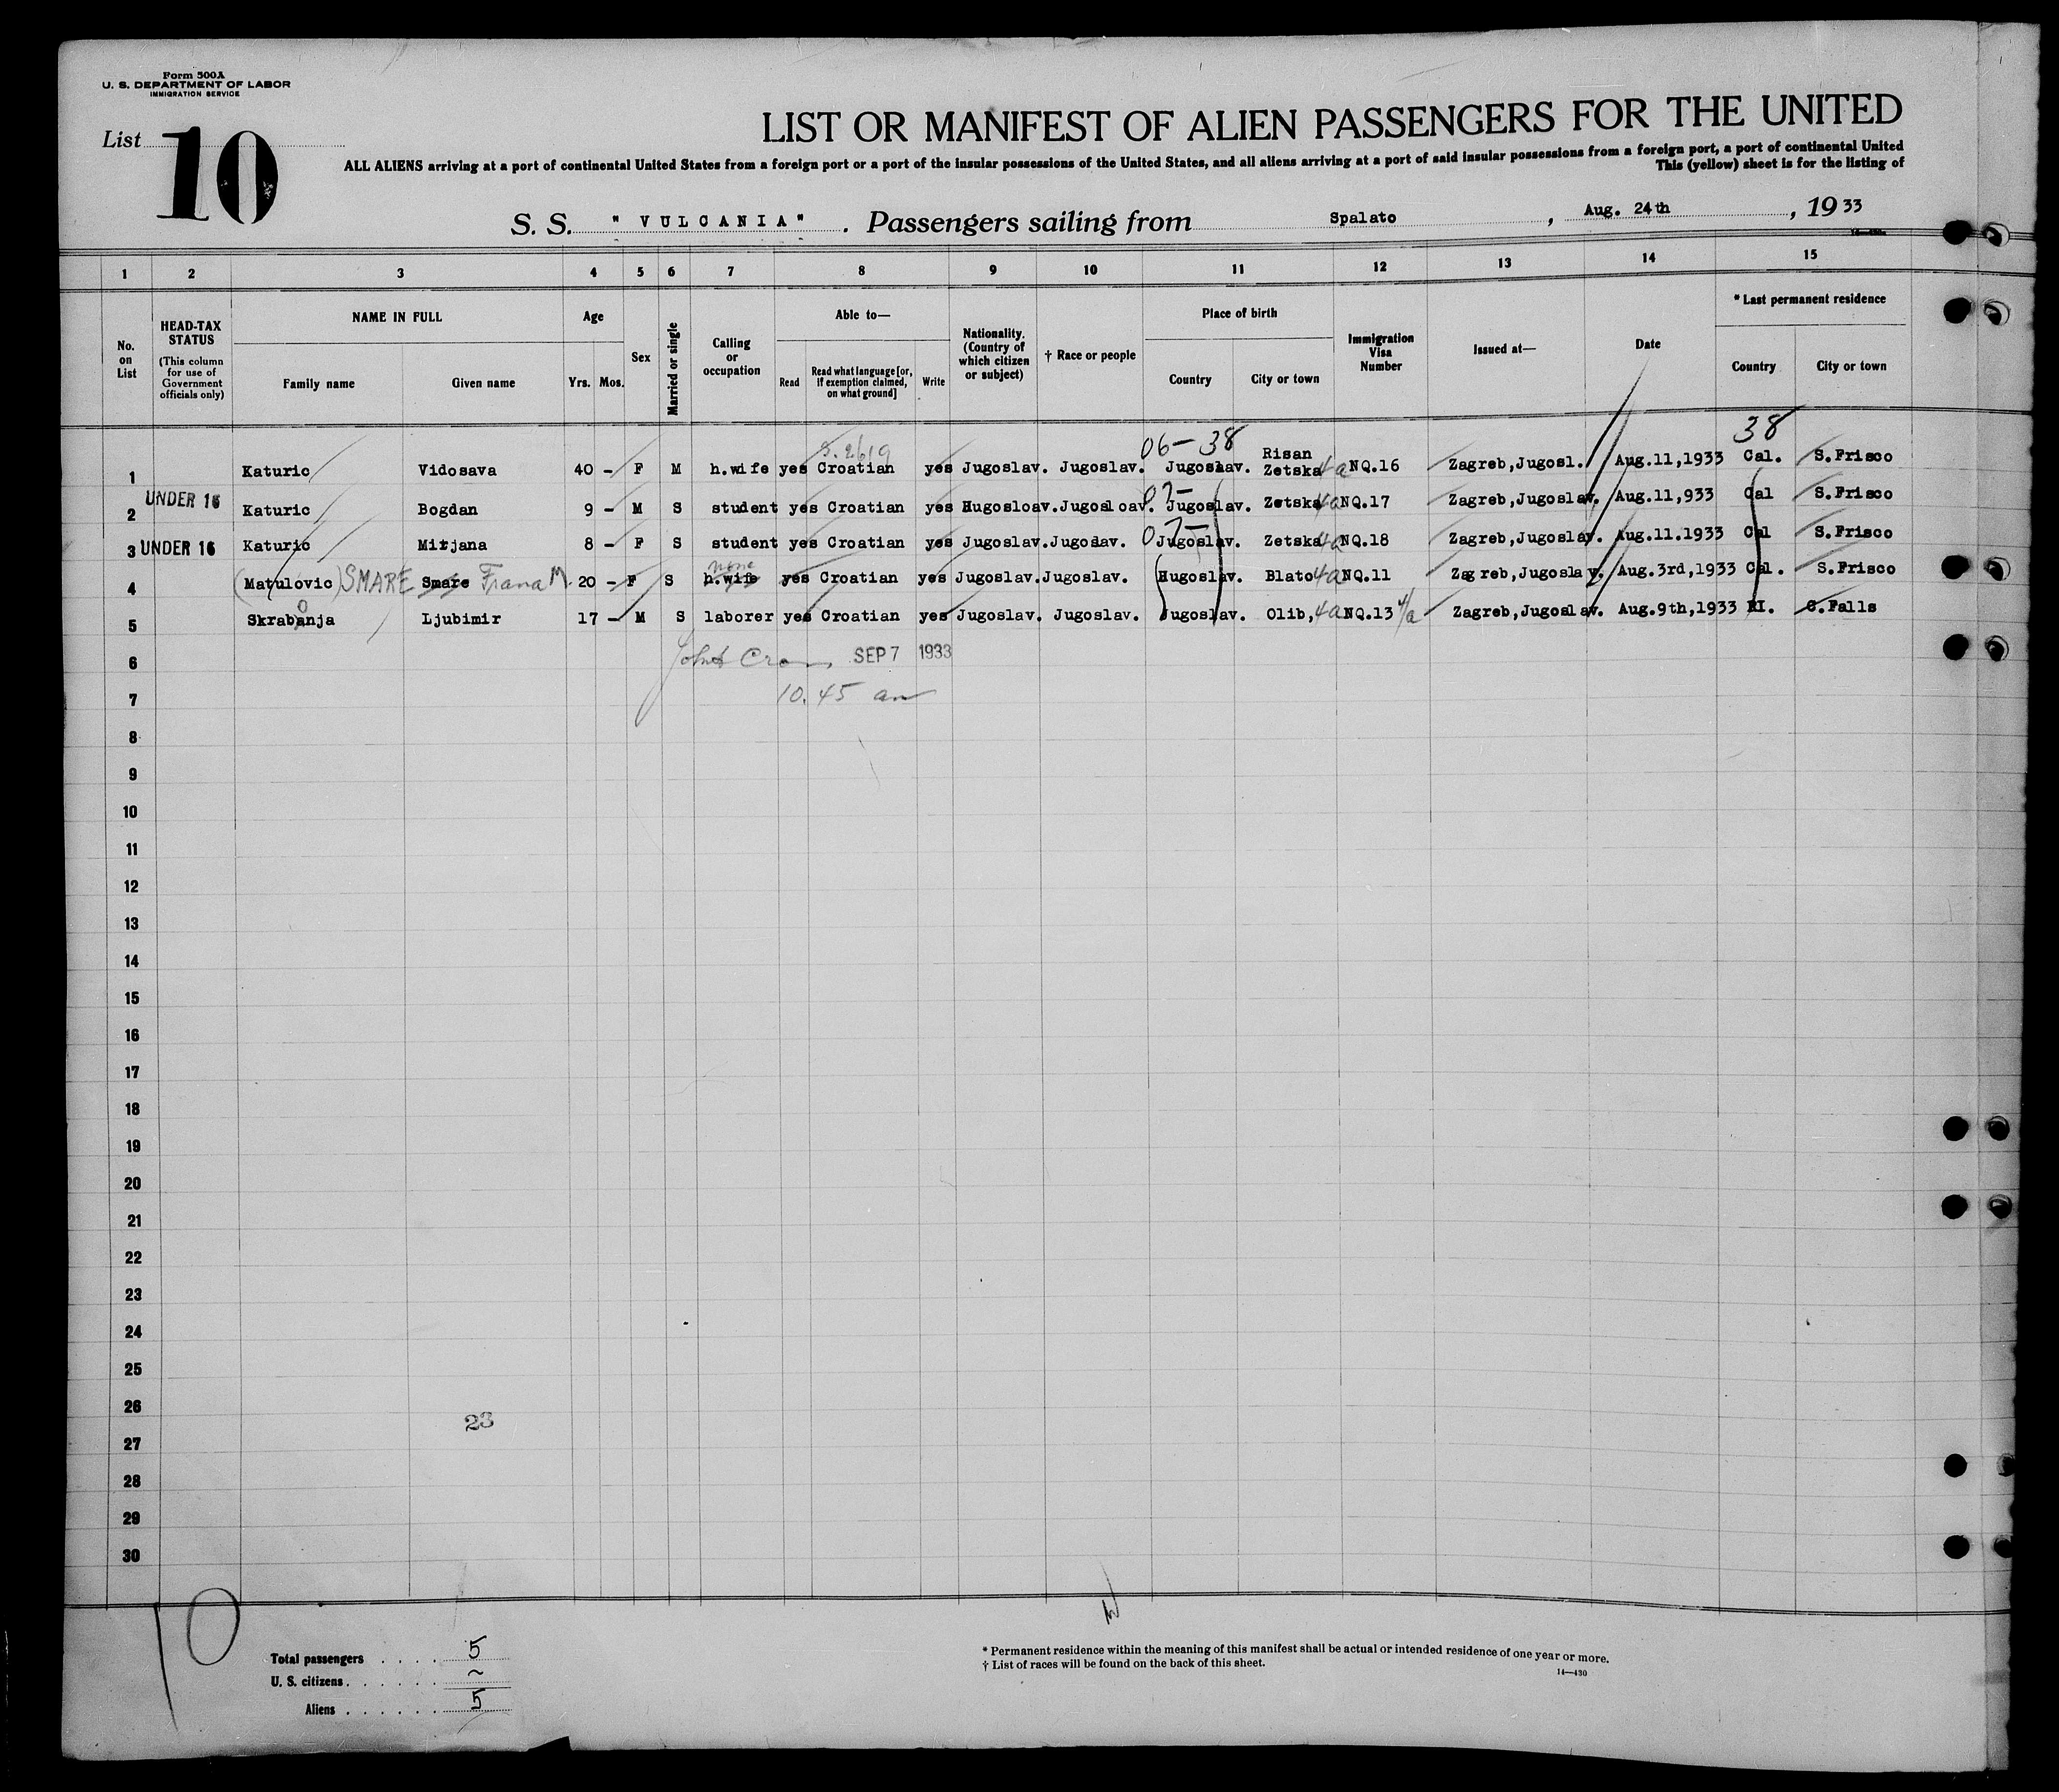 Form 500A
U. S. DEPARTMENT OF LABOR
IMMIGRATION SERVICE
List 10
LIST OR MANIFEST OF ALIEN PASSENGERS FOR THE UNITED
ALL ALIENS arriving at a port of continental United States from a foreign port or a port of the insular possessions of the United States, and all aliens arriving at a port of said insular possessions from a foreign port, a port of continental United
This (yellow) sheet is for the listing of
S. S. "VULCANIA". Passengers sailing from Spalato, Aug. 24th, 1933
1 2 3 4 5 6 7 8 9 10 11 12 13 14 15
No. on List
HEAD-TAX STATUS
(This column for use of Government officials only)
NAME IN FULL
Family name Given name
Age
Yrs. Mos.
Sex
Married or single
Calling or occupation
Able to—
Read Read what language [or, if exemption claimed, on what ground] Write
Nationality. (Country of which citizen or subject)
† Race or people
Place of birth
Country City or town
Immigration Visa Number
Issued at—
Date
* Last permanent residence
Country City or town
06-38 38
1 Katuric Vidosava 40 - F M h.wife yes Croatian yes Jugoslav. Jugoslav. Jugoslav. Risan Zetska 4a NQ.16 Zagreb,Jugosl. Aug.11,1933 Cal. S.Frisco
2 UNDER 16 Katuric Bogdan 9 - M S student yes Croatian yes Hugosloav. Jugosloav. Jugoslav. Zetska 4a NQ.17 Zagreb,Jugoslav. Aug.11,933 Cal S.Frisco
3 UNDER 16 Katuric Mirjana 8 - F S student yes Croatian yes Jugoslav. Jugoslav. Jugoslav. Zetska 4a NQ.18 Zagreb,Jugoslav. Aug.11.1933 Cal S.Frisco
none
4 (Matulovic) SMARE Smare Frana M. 20 - F S h.wife yes Croatian yes Jugoslav. Jugoslav. Hugoslav. Blato 4a NQ.11 Zagreb,Jugoslav. Aug.3rd,1933 Cal. S.Frisco
5 Skrabanja Ljubimir 17 - M S laborer yes Croatian yes Jugoslav. Jugoslav. Jugoslav. Olib, 4a NQ.13 4/a Zagreb,Jugoslav. Aug.9th,1933 RI. C.Falls
6 SEP 7 1933
7 10.45 am
8
9
10
11
12
13
14
15
16
17
18
19
20
21
22
23
24
25
26
23
27
28
29
30
10
Total passengers . . . . 5
U. S. citizens . . . . . . ~
Aliens . . . . . . 5
* Permanent residence within the meaning of this manifest shall be actual or intended residence of one year or more.
† List of races will be found on the back of this sheet.
14—430